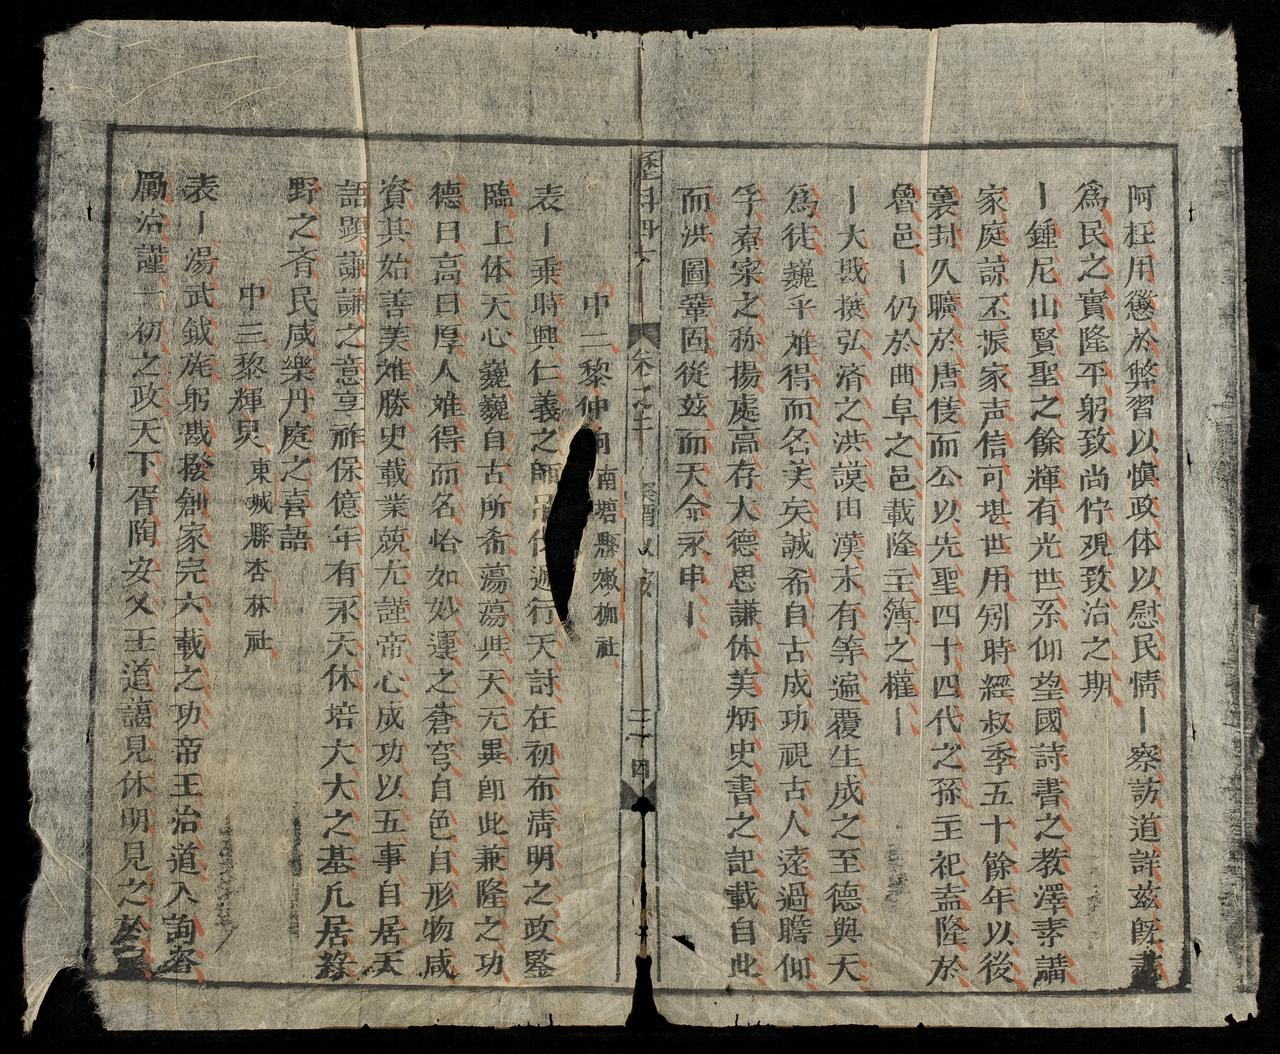 阿枉用懲於弊習以愼政体以慰民情丨察訪道詳茲旣盡
爲民之實隆平躬致尚佇覌致治之期
丨鍾尼山賢聖之餘輝有光世系仰望國詩書之教澤素講
家庭諒丕振家声信可堪世用矧時經叔季五十餘年以後
褒封久曠於唐伐而公以先聖四十四代之孫主祀盍隆於
魯邑丨仍於曲阜之邑載隆主簿之權丨
丨大戡撥弘济之洪謨由漢末有等遍覆生成之至德與天
爲徒巍乎难得而名美矣誠希自古成功視古人逺過瞻仰
乎寮寀之称揚處高存大德思謙体美炳史書之記載自此
而洪圖鞏固從茲而天命永申丨
卷之二
二十四
中二黎仲 南塘縣 柳社
表丨乗時興仁義之師 行天討在初布清明之政鍳
臨上体天心巍巍自古所希蕩蕩與天无異卽此兼隆之功
德曰高曰厚人难得而名恰如妙運之蒼穹自色自形物咸
資其始善美难勝史載業兢尤謹帝心成功以五事自居天
語顕謙謙之意享祚保億年有永天休培大大之基凢居綠
野之斉民咸樂丹庭之喜語
中三黎輝炅 東城縣杏林社
表丨湯武鉞旄躬戡撥創家完六載之功帝王治道入詢咨
勵治謹一初之政天下胥陶安乂王道藹見休明見之於